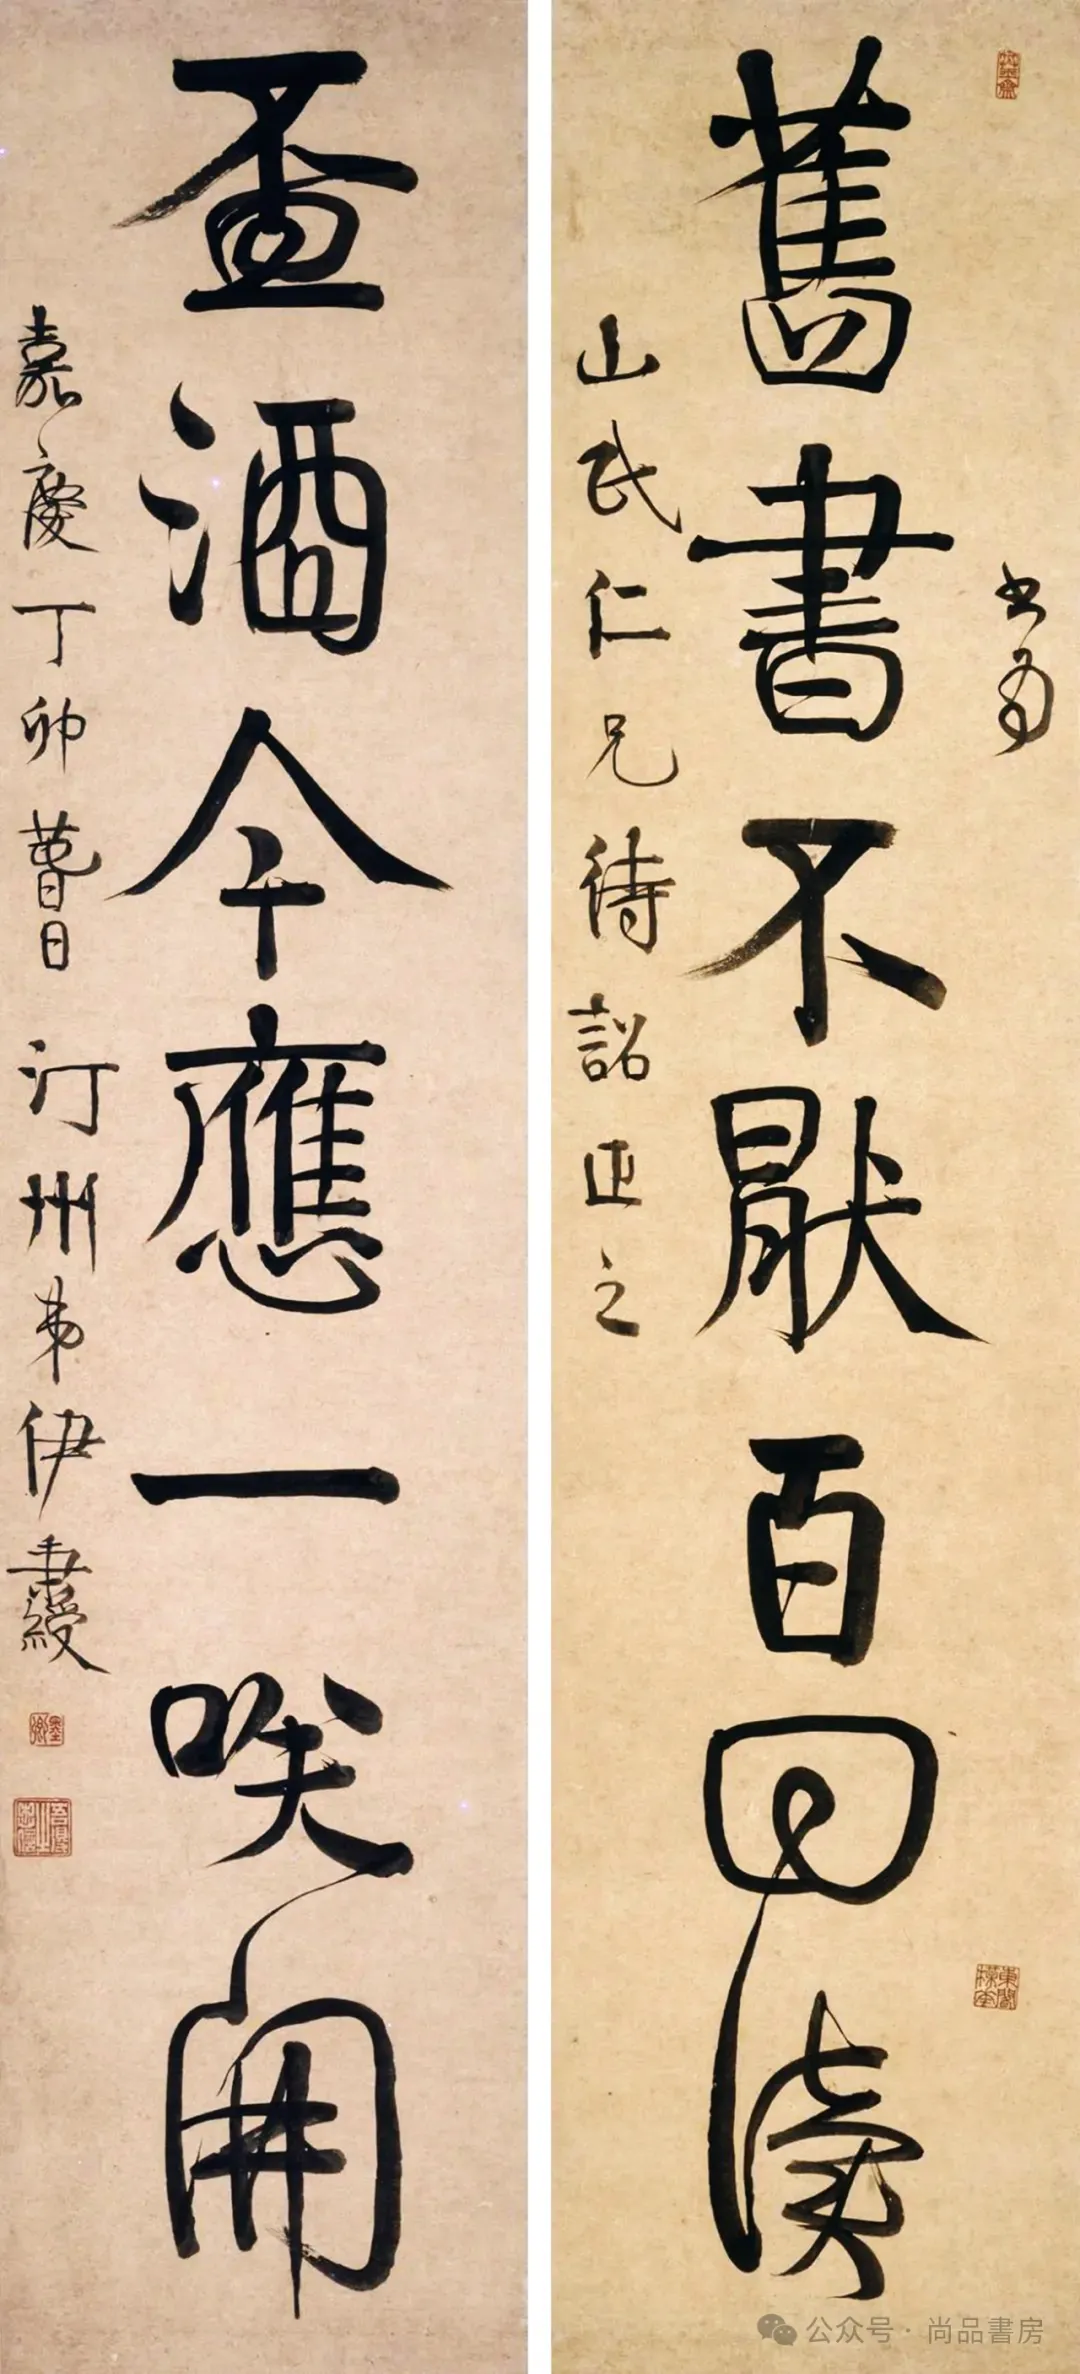 書為
舊書不猒百回讀
山民仁兄待詔正之
盃酒今應一咲開
嘉慶丁卯萅日汀州弟伊秉綬
墨卿
公众号 · 尚品書房